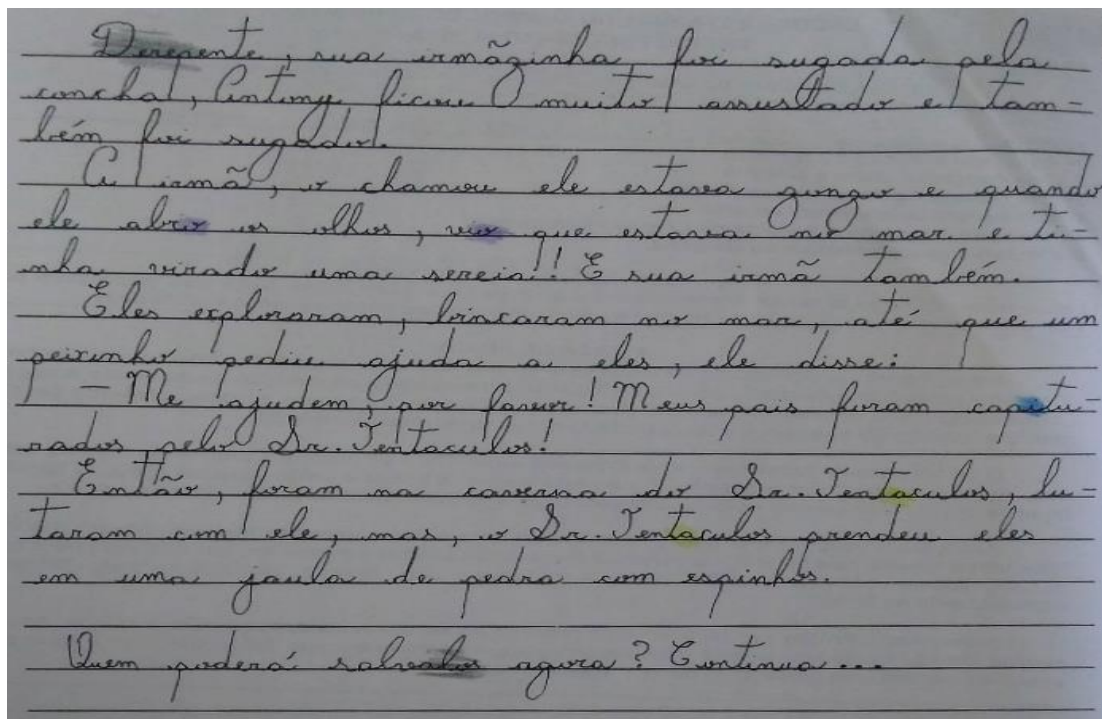 Derepente, sua irmãzinha, foi sugada pela
concha!, Antony, ficou muito assustado e tam-
bém foi sugado!.
A irmã, o chamou ele estava gongo e quando
ele abrio os olhos, vio que estava no mar e ti-
nha virado uma sereia!! E sua irmã também.
Eles exploraram, brincaram no mar, até que um
peixinho pediu ajuda a eles, ele disse:
— Me ajudem, por favor! Meus pais foram capitu-
rados pelo Dr. Tentaculos!
Então, foram na caverna do Dr. Tentaculos, lu-
taram com ele, mas, o Dr. Tentaculos prendeu eles
em uma jaula de pedra com espinhos.
Quem poderá salvalos agora? Continua...